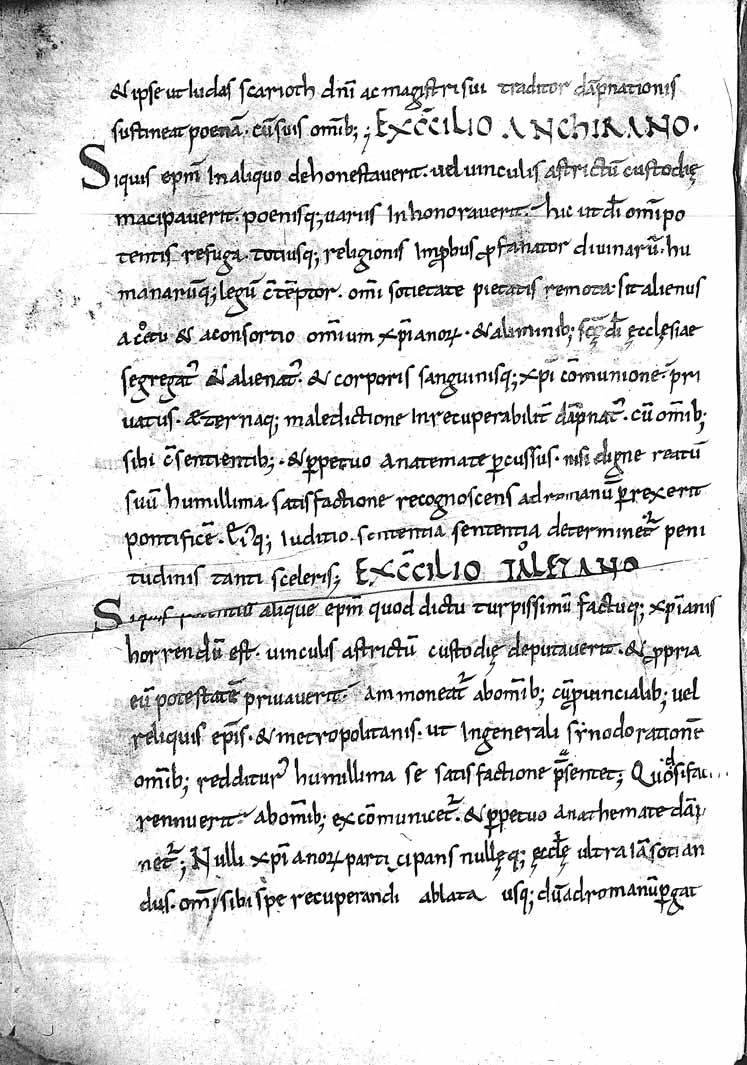 & ipse ut Iudas scarioth dnī ac magistri sui traditor dāpnationis
sustineat poenā. cū suis omīb; ; EX CC̄ILIO ANCHIRANO.
Siquis epm̄ In aliquo dehonestaverit. uel uinculis astrictū custodię
macipauerit. poenisq; uariis Inhonorauerit. hic ut dī omīpo
tentis refuga. totiusq; religionis Imꝓbus ꝓfanator diuinarū. hu
manarūq; legū c̄tēptor. omī sotietate pietatis remota. sit alienus
a cętu & a consortio omīum xp̄ianoꝝ. & a liminib; scę̄ dī ęcclesiae
segregat᷑ & alienat᷑. & corporis sanguinisq; xp̄i cōmunione pri
uatus. æternaq; maledictione Inrecuperabilit̄ dāpnat᷑. cū omīb;
sibi c̄sentientib;. & ꝑpetuo anatemate ꝑcussus. nisi digne reatū
suū humillima satisfactione recognoscens ad romanū ꝑrexerit
pontificē. iuditio sententia determinet᷑ peni
tudinis tanti sceleris; EX CC̄ILIO TOLETANO
Siquis alique epm̄ quod dictu turpissimū factuq; xp̄ianis
horrendū est. uinculis astrictū custodię deputauerit. & ꝓpria
eū potestatē priuauerit. Ammoneat᷑ ab omīb; cū ꝓuincialib; uel
reliquis ep̄is. & metropolitanis. ut In generali synodo rationē
omīb; redditur᷑ humillima se satisfactione p̄sentet; Quod si fa
rennuerit. ab omīb; excōmunicet᷑. & ꝑpetuo anathemate dāp
net᷑; Nulli xp̄ianoꝝ participans nullęq; ęccłę ultra iā sotian
dus. omī sibi spe recuperandi ablata usq; dū ad romanū ꝑgat